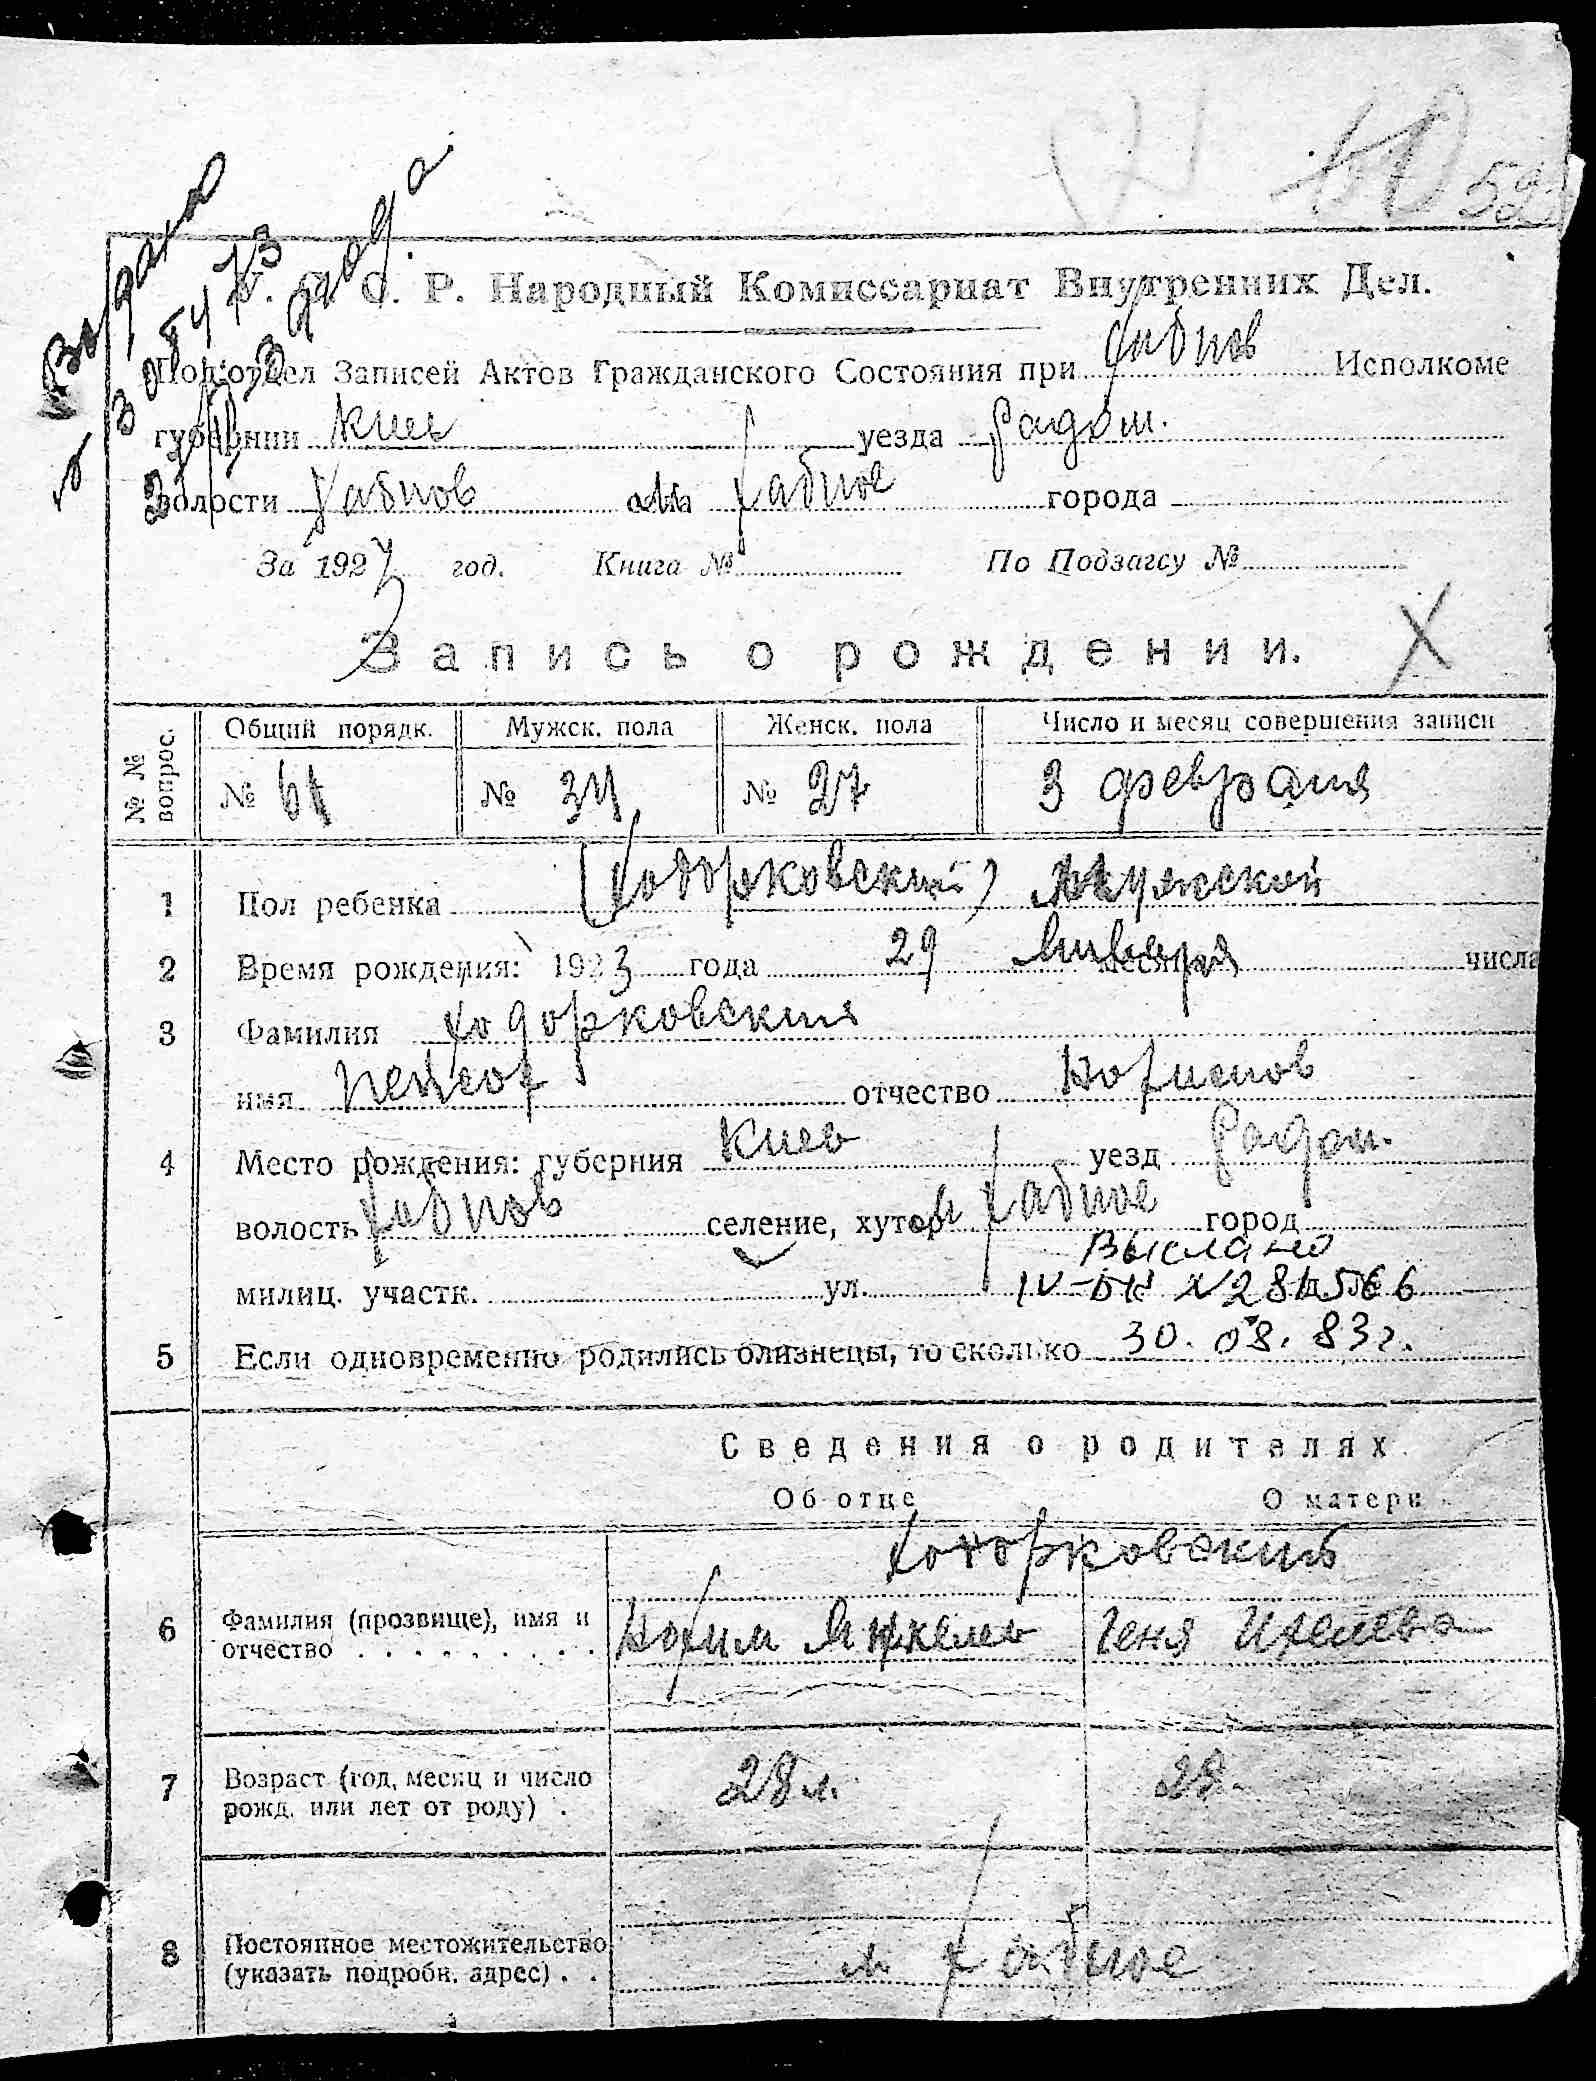 52
У. С. С. Р. Народный Комиссариат Внутренних Дел.
Выдано
Подотдел Записей Актов Гражданского Состояния при Хабнов Исполкоме
губернии Киев уезда Радом.
волости Хабнов м. Хабное города
За 1923 год. Книга № По Подзагсу №
Запись о рождении.
№ № вопрос.
Общий порядк. Мужск. пола Женск. пола Число и месяц совершения записи
№ 61 № 34 № 27 3 февраля
1 Пол ребенка (Ходорковский) Мужской
2 Время рождения: 1923 года 29 Января месяца числа
3 Фамилия Ходорковский
имя отчество Нохимов
4 Место рождения: губерния Киев уезд Радом.
волость Хабнов селение, хутор м Хабное город
Выслано
милиц. участк. ул. IV-БК N281566
5 Если одновременно родились близнецы, то сколько 30. 08. 83г.
Сведения о родителях
Об отце О матери
Ходорковский
6 Фамилия (прозвище), имя и отчество Нохим Янкелев Геня Ихелева
7 Возраст (год, месяц и число рожд. или лет от роду) 28 л. 28.
8 Постоянное местожительство (указать подробн. адрес) м Хабное